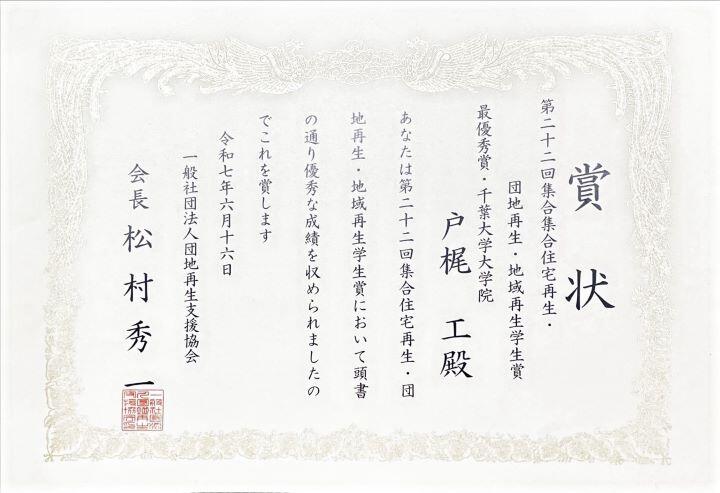 賞状
第二十二回集合集合住宅再生・
団地再生・地域再生学生賞
最優秀賞・千葉大学大学院
戸梶 工殿
あなたは第二十二回集合住宅再生・団
地再生・地域再生学生賞において頭書
の通り優秀な成績を収められましたの
でこれを賞します
令和七年六月十六日
一般社団法人団地再生支援協会
会長 松村秀一